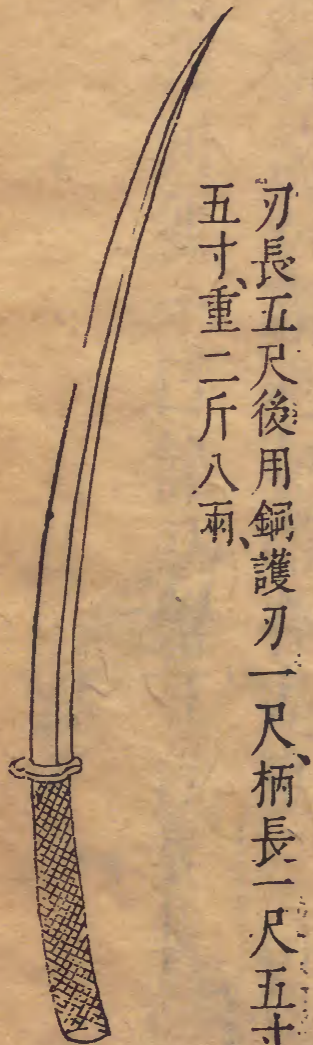 刃長五尺後用銅護刃一尺、柄長一尺五寸
五寸、重二斤八兩、